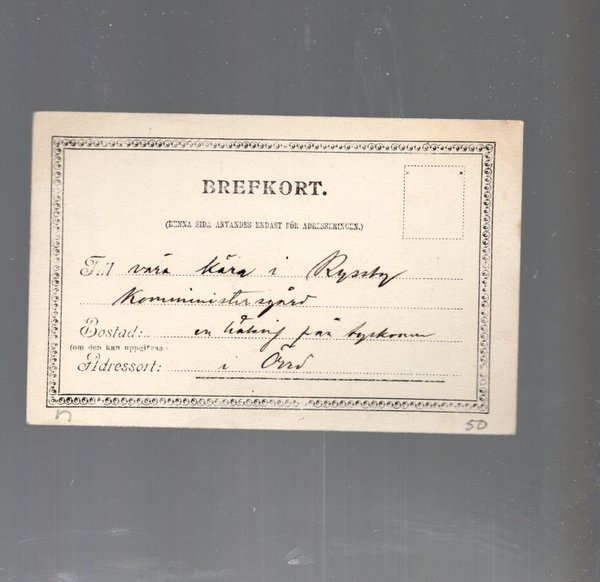 BREFKORT.
(DENNA SIDA ANVANDES ENDAST FÖR ADRESSERINGEN.)
Till våra kära i Ryssby
Komministersgård
Bostad: en från
(om den kan uppgifvas)
Adressort: i
50